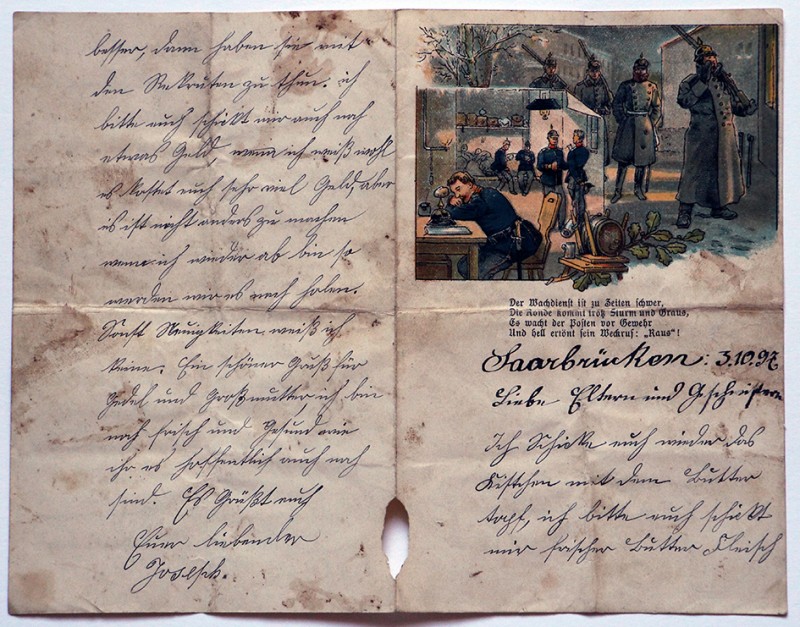 besser, dann haben sie mit
den Rekruten zu thun. ich
bitte euch schickt mir auch noch
etwas Geld, wenn ich weiß wohl
es kostet euch sehr viel Geld, aber
es ist nicht anders zu machen
wenn ich wieder ab bin so
werden wir es nach holen.
Sonst Neuigkeiten weiß ich
keine. Ein schöner Gruß für
und Großmutter, ich bin
noch frisch und Gesund wie
ihr es hoffentlich auch noch
sind. Es Grüßt euch
Euer liebender
Joseph.
Der Wachdienst ist zu Zeiten schwer,
Die Ronde kommt trotz Sturm und Graus,
Es wacht der Posten vor Gewehr
Und hell ertönt sein Weckruf: „Raus"!
Saarbrücken: 3.10.97
Liebe Eltern und Geschwistern
Ich Schicke euch wieder das
Kistchen mit dem Butter
topf, ich bitte euch schickt
mir frischer Butter Fleisch